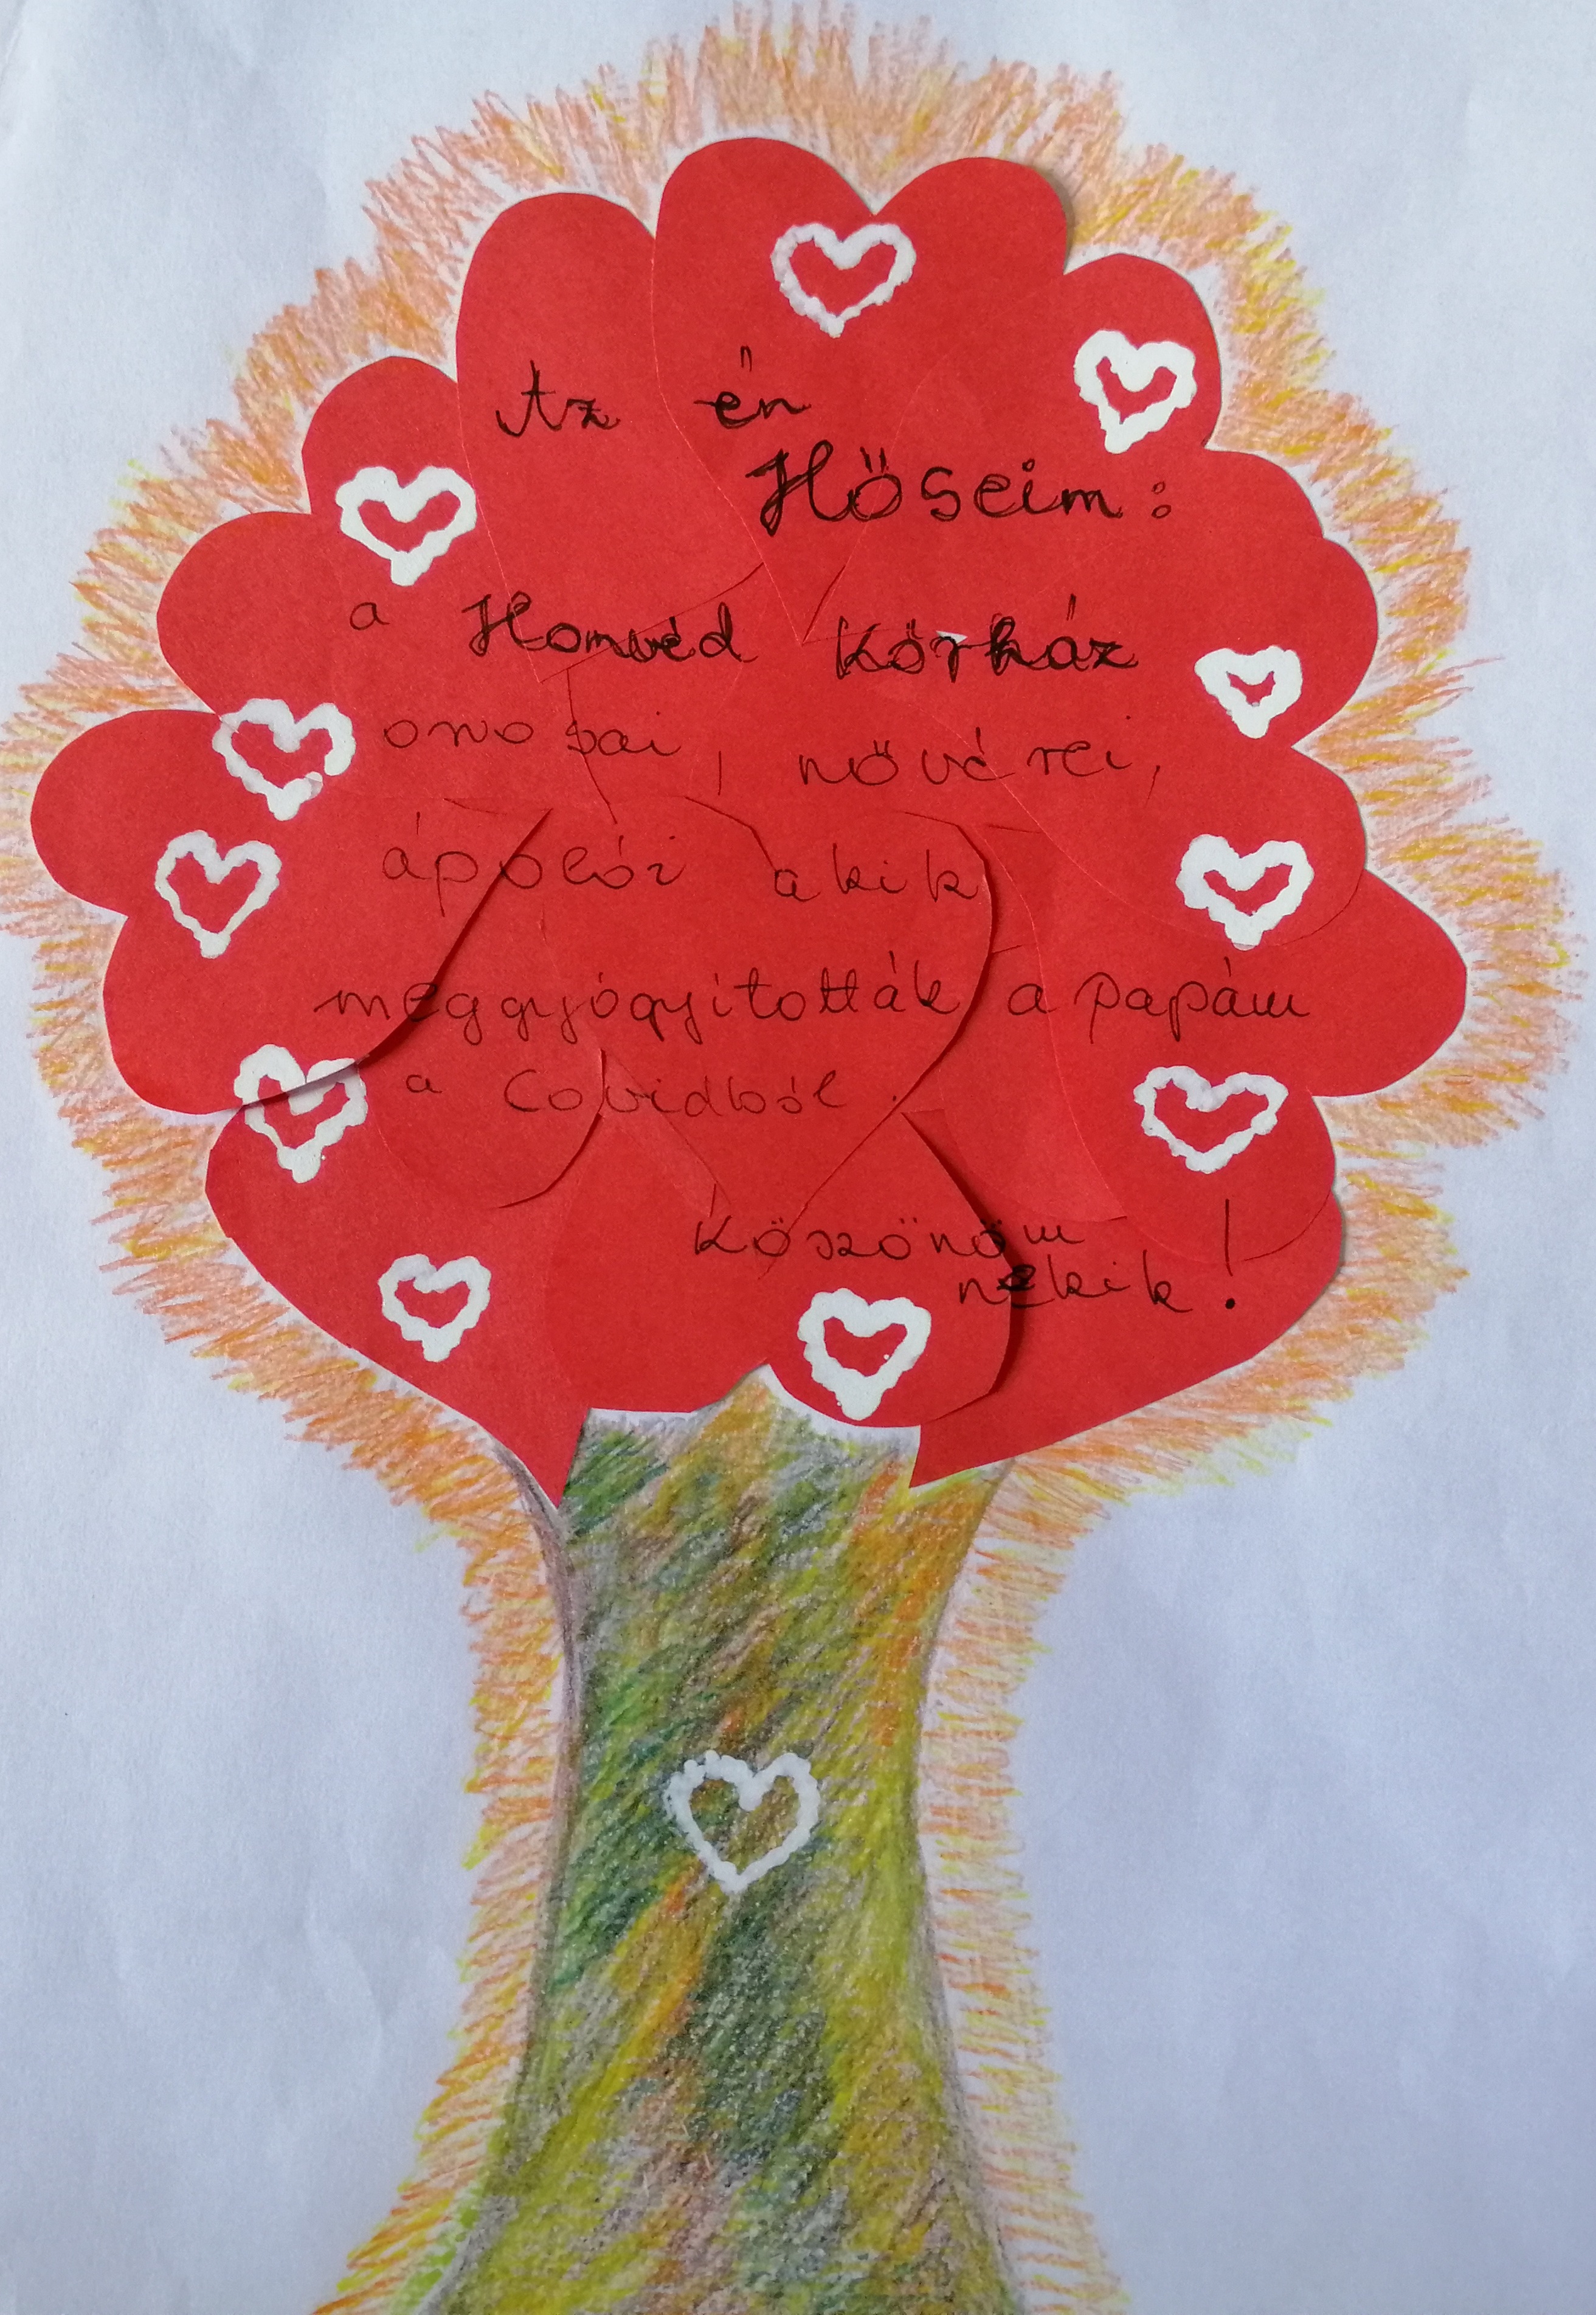 Az én
Hőseim:
a Honvéd Kórház
orvosai, nővérei,
ápolói akik
meggyógyították a papám
a Covidból.
Köszönöm
nekik!